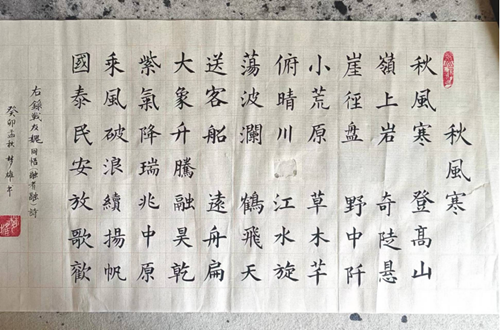 秋風寒
秋風寒 登髙山
嶺上岩 奇陡悬
崖徑盘 野中阡
小荒原 草木芊
俯晴川 江水旋
蕩波瀾 鶴飛天
送客船 遠舟扁
大象升騰融昊乾
紫氣降瑞兆中原
乘風破浪續揚帆
國泰民安放歌歡
右錄戰友魏 詩
癸卯